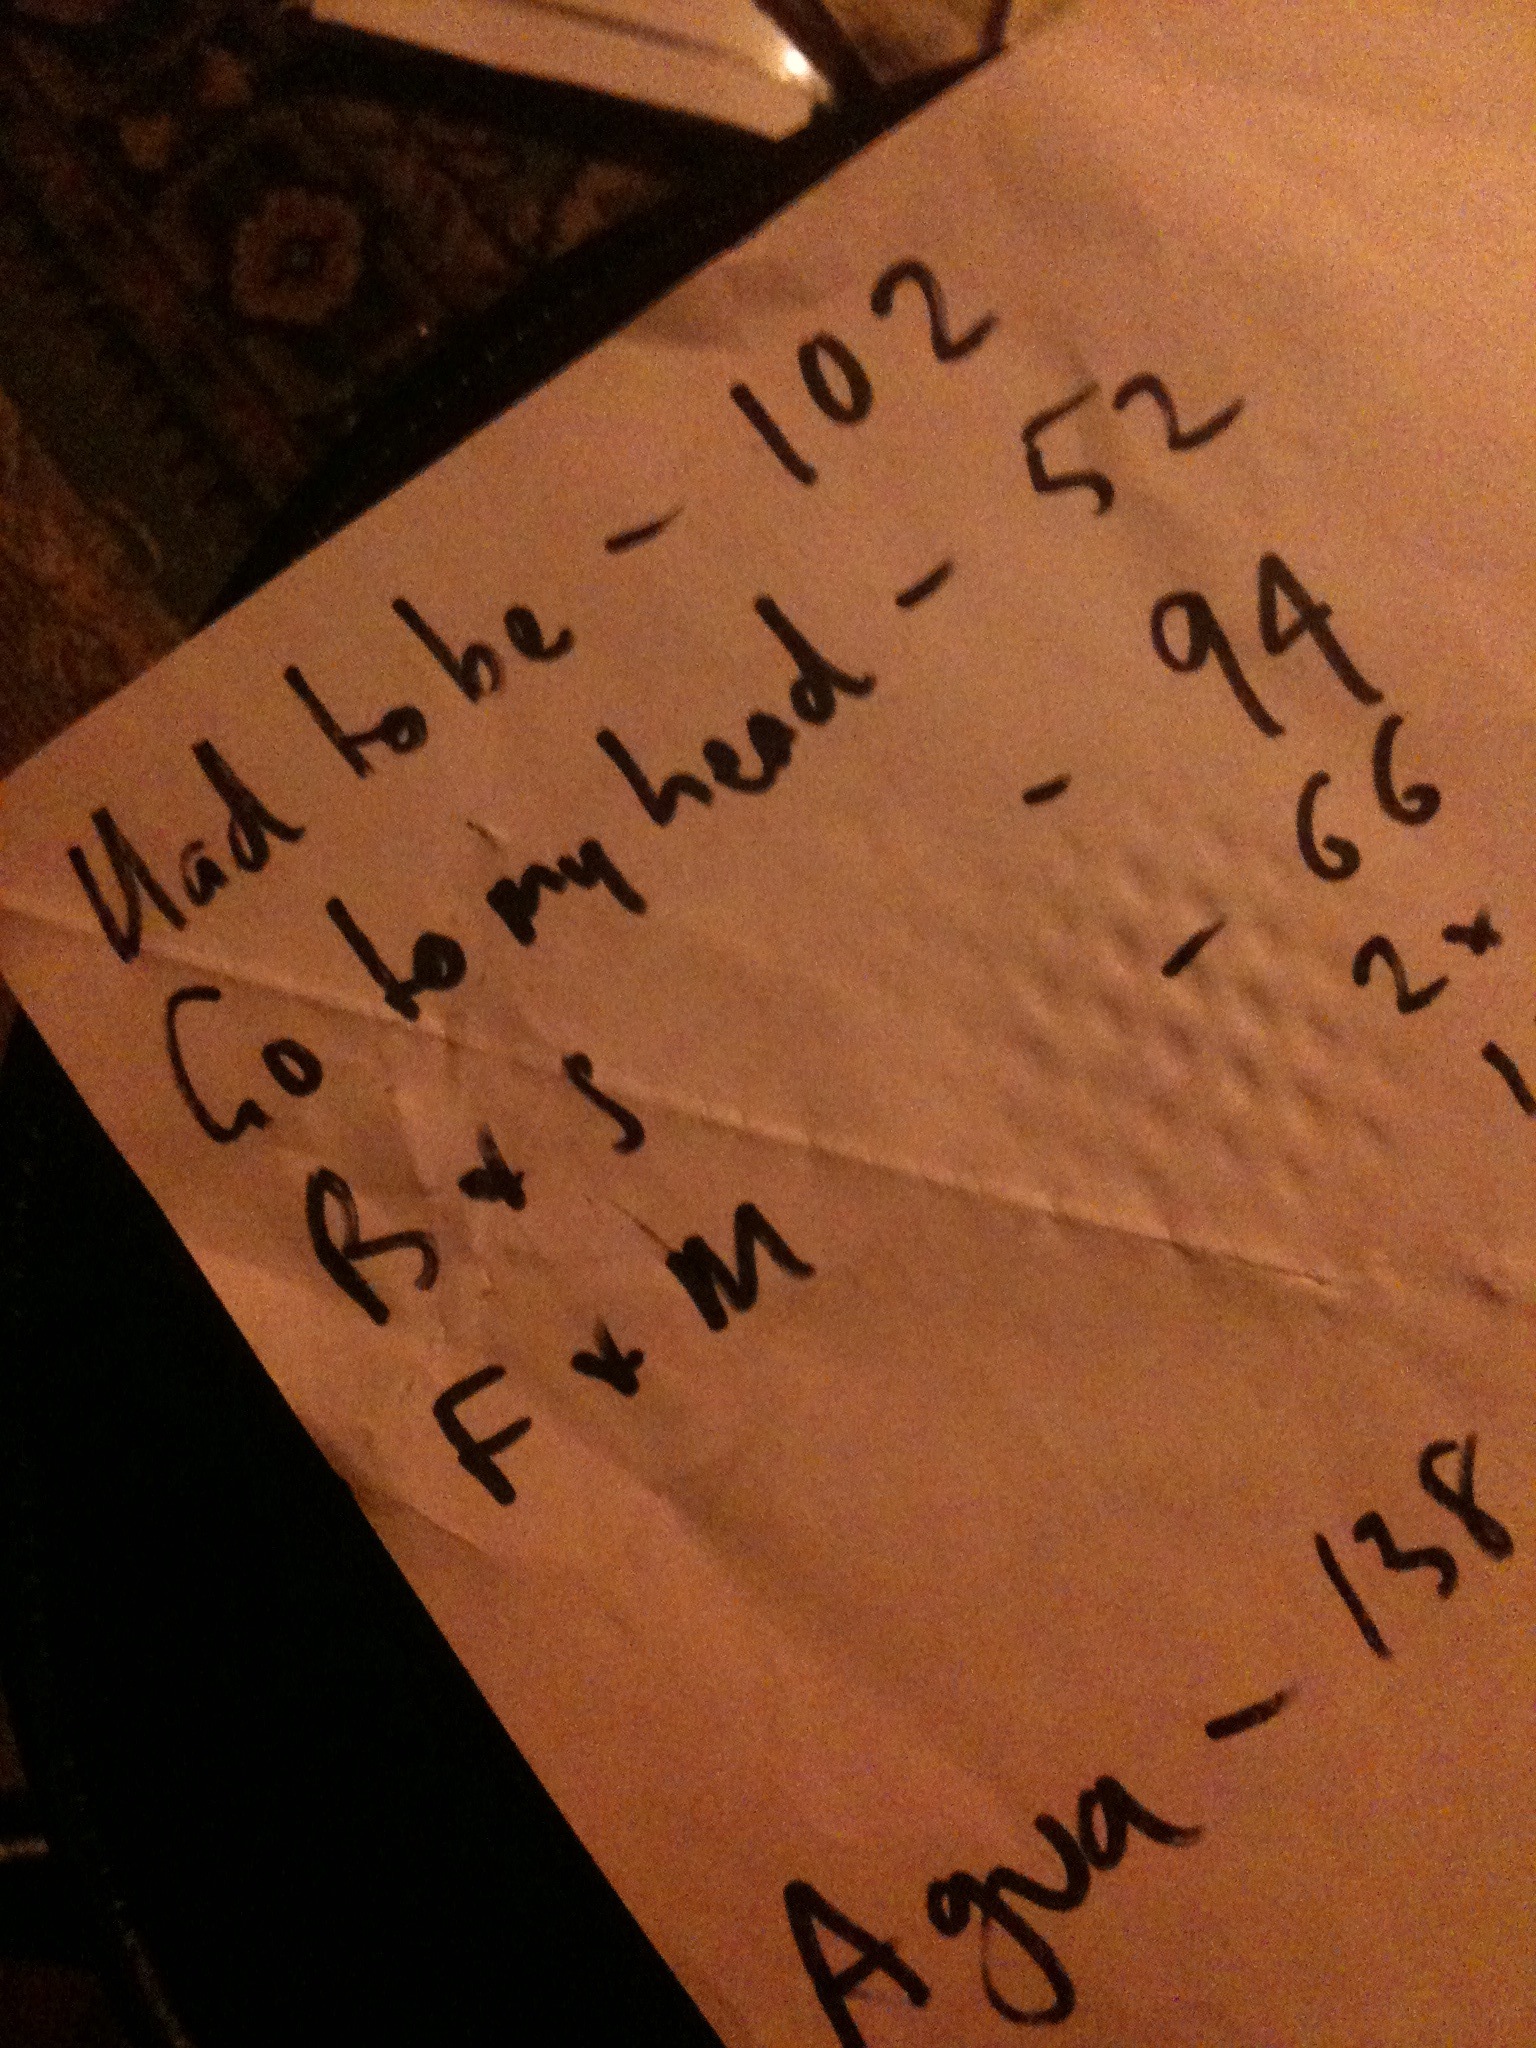 Had to be - 102
Go to my head - 52
B + S - 94
F + M - 66
2+
1
Agua - 138